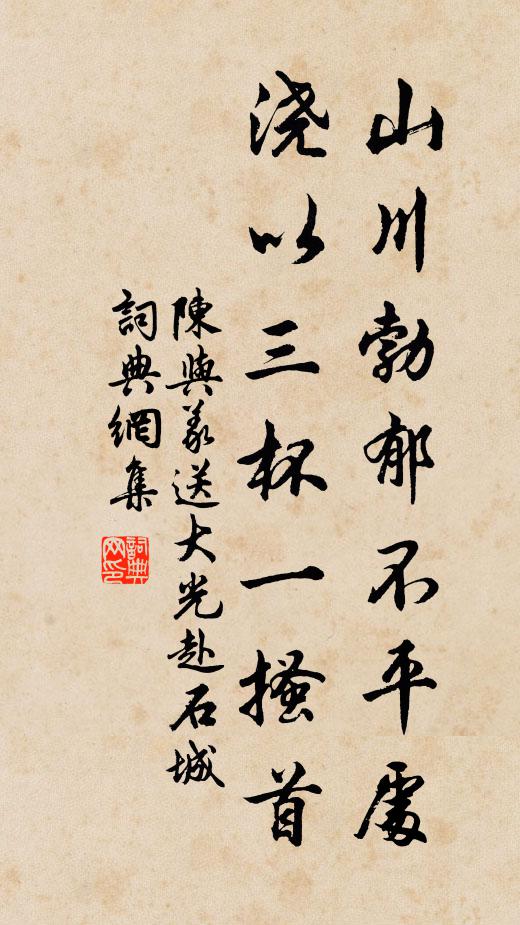 山川勃郁不平處
浇以三杯一搔首
陳與義送大光赴石城
詞典網集
詞典网印